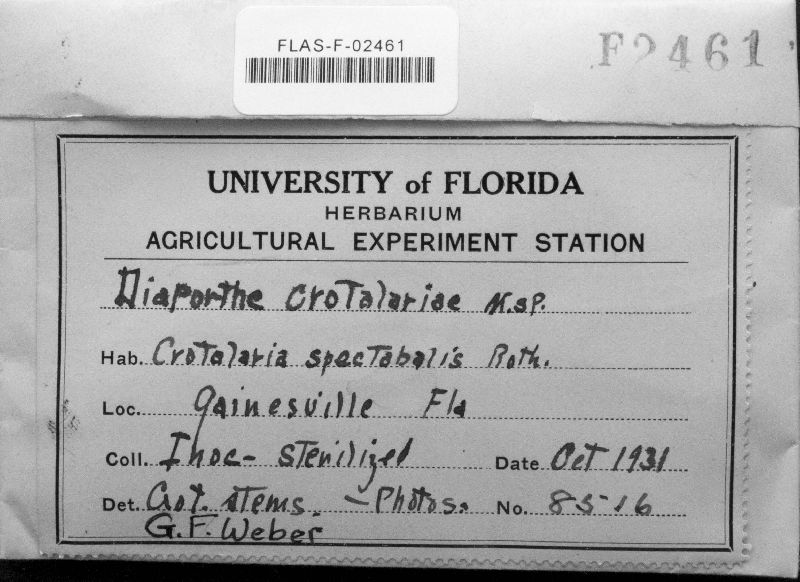 FLAS-F-02461
F2461
UNIVERSITY of FLORIDA
HERBARIUM
AGRICULTURAL EXPERIMENT STATION
Diaporthe crotalariae N.sp.
Hab. Crotalaria spectabalis Roth.
Loc. Gainesville Fla
Coll. Inoc- sterilized Date Oct 1931
Det. Crot. stems. - Photos. No. 8516
G.F. Weber